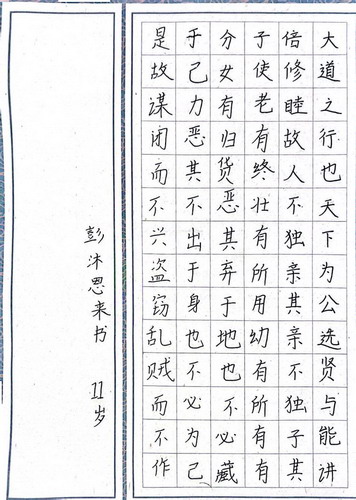 大道之行也天下为公选贤与能讲
倍修睦故人不独亲其亲不独子其
子使老有终壮有所用幼有所有有
分女有归货恶其弃于地也不必藏
于己力恶其不出于身也不必为己
是故谋闭而不兴盗窃乱贼而不作
彭沐恩来书 11岁